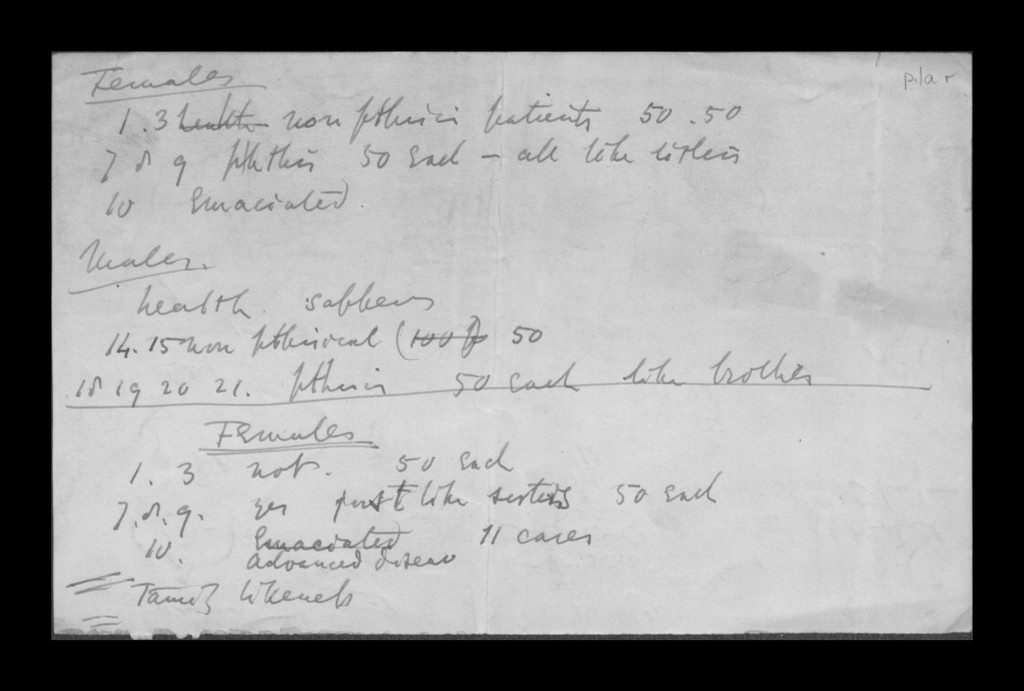 Females
p.la r
1.3 health non phthisis patients 50.50
7 8 9 phthisis 50 each – all like sisters
10 Emaciated.
Males.
health. sappers
14.15 non phthisical (100) 50
18 19 20 21. phthisis 50 each like brothers
Females
1. 3 not. 50 each
7.8.9. yes like sisters 50 each
10. Emaciated 11 cases
advanced disease
Family likeness